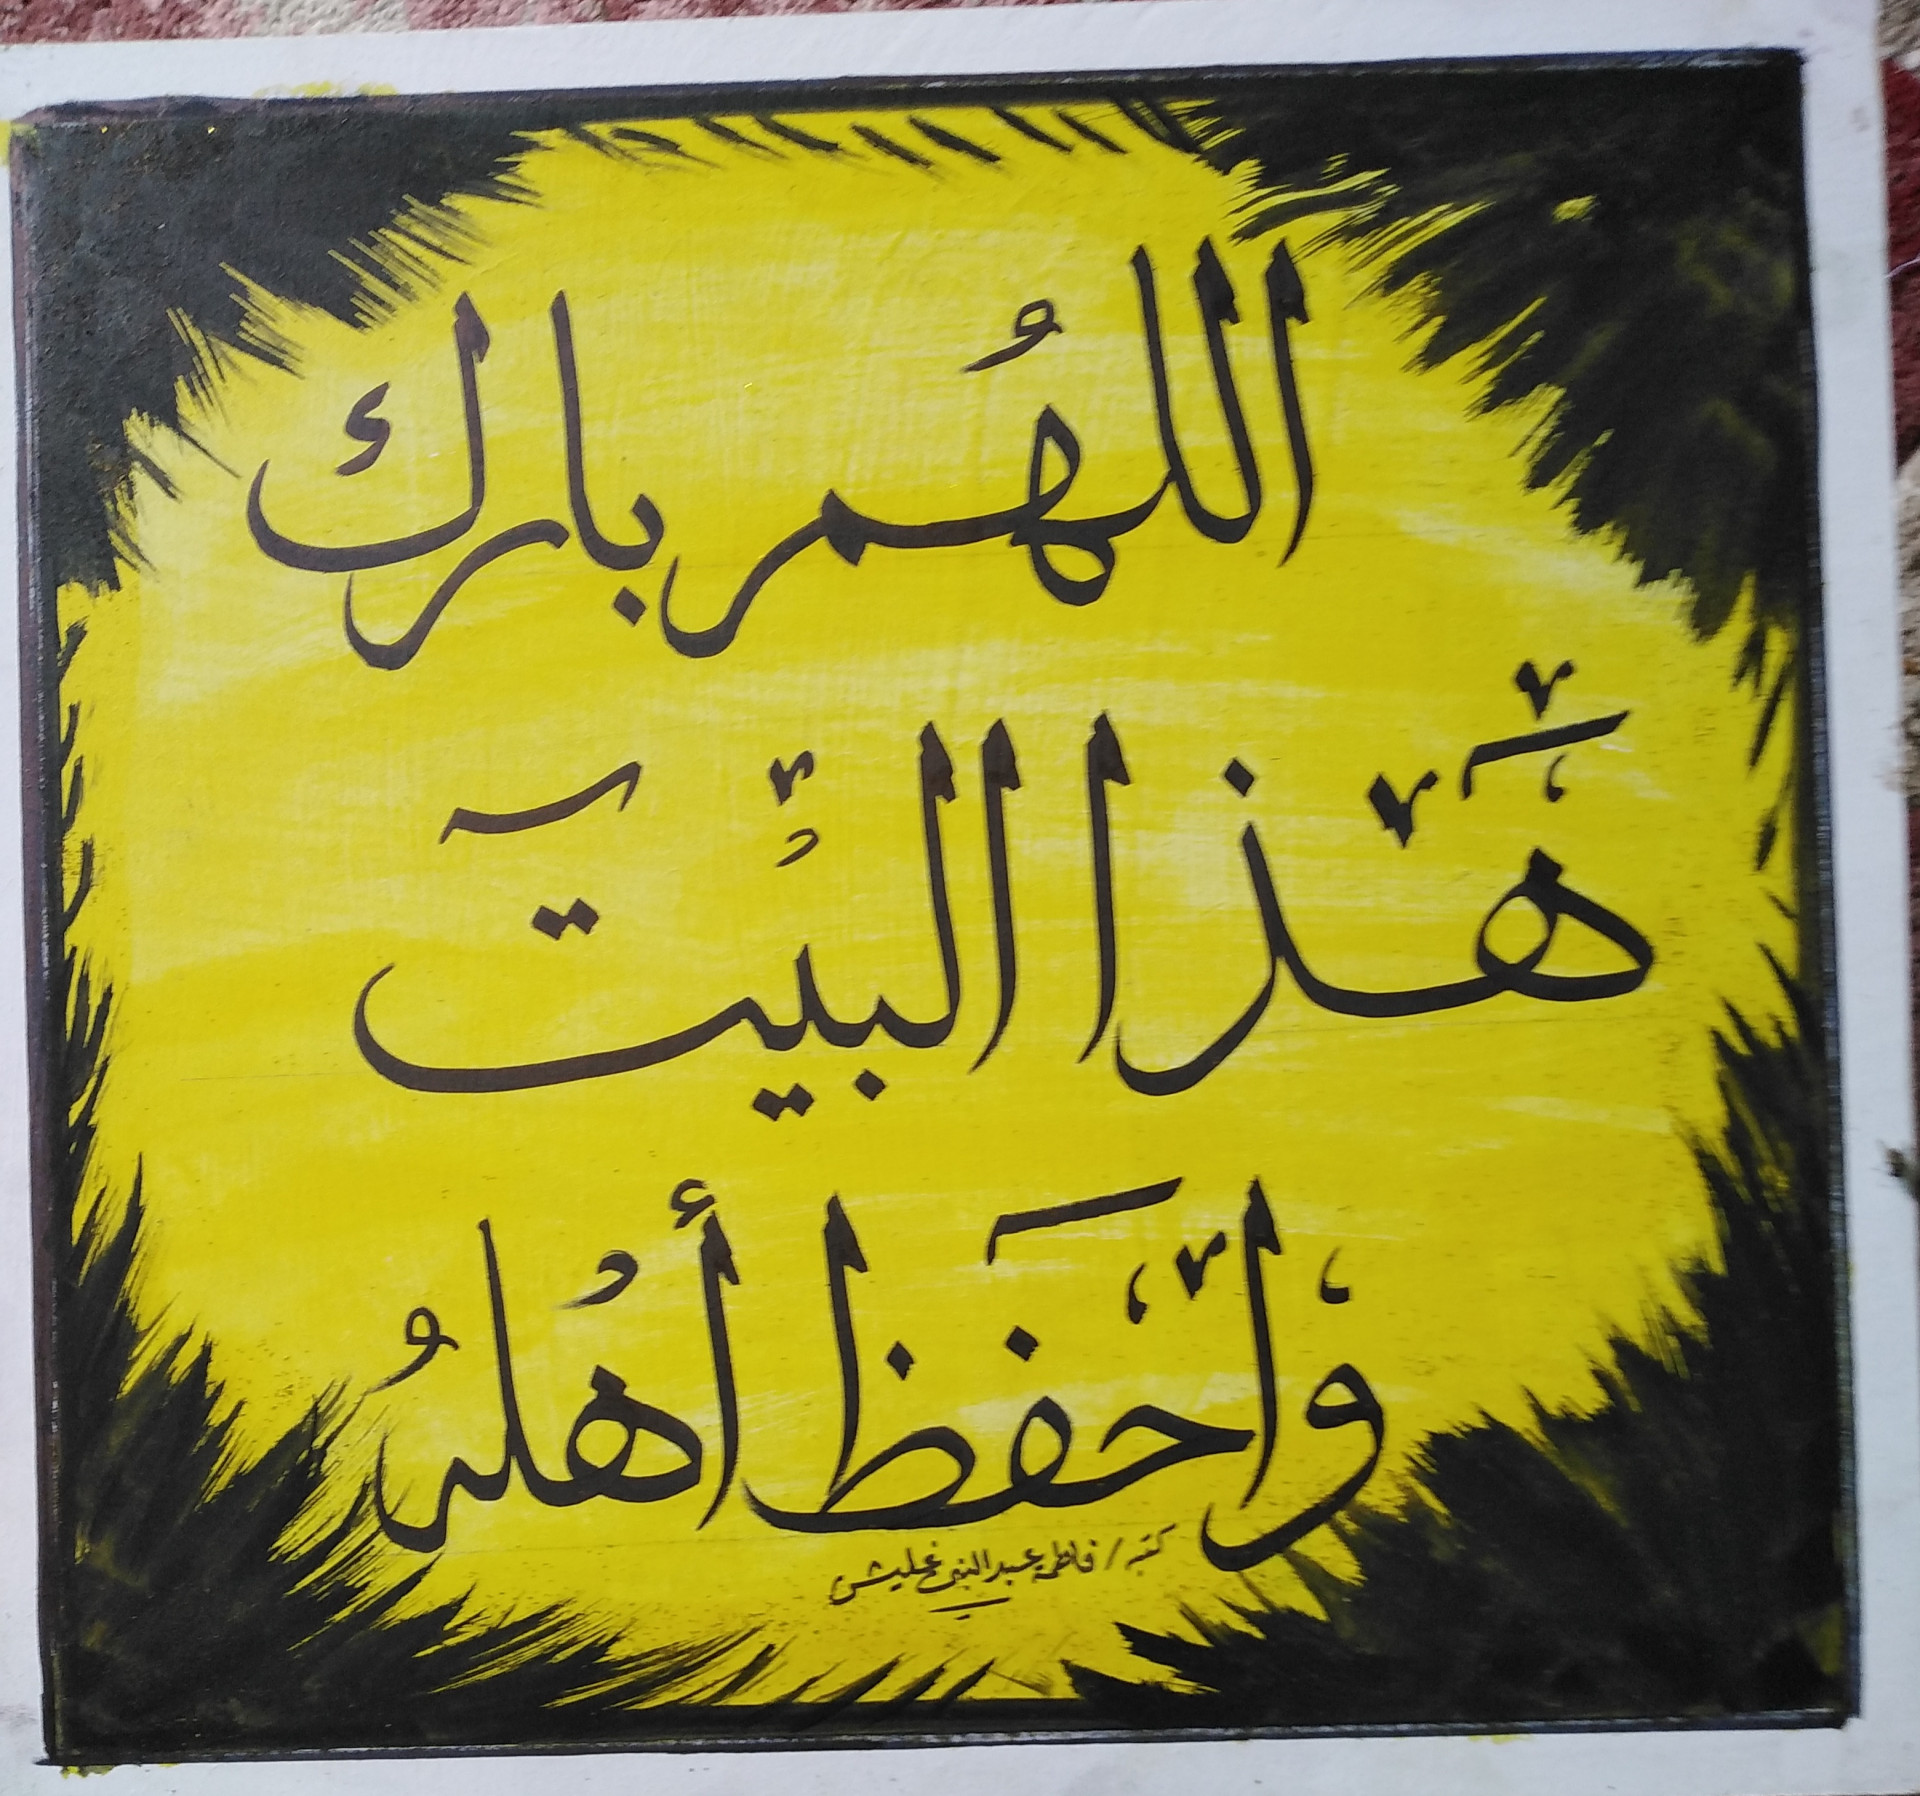 اللهُم بارك
هَذا البيت
واحَفظ أهُلهُ
كتبه / فاطمه عبدالنبي